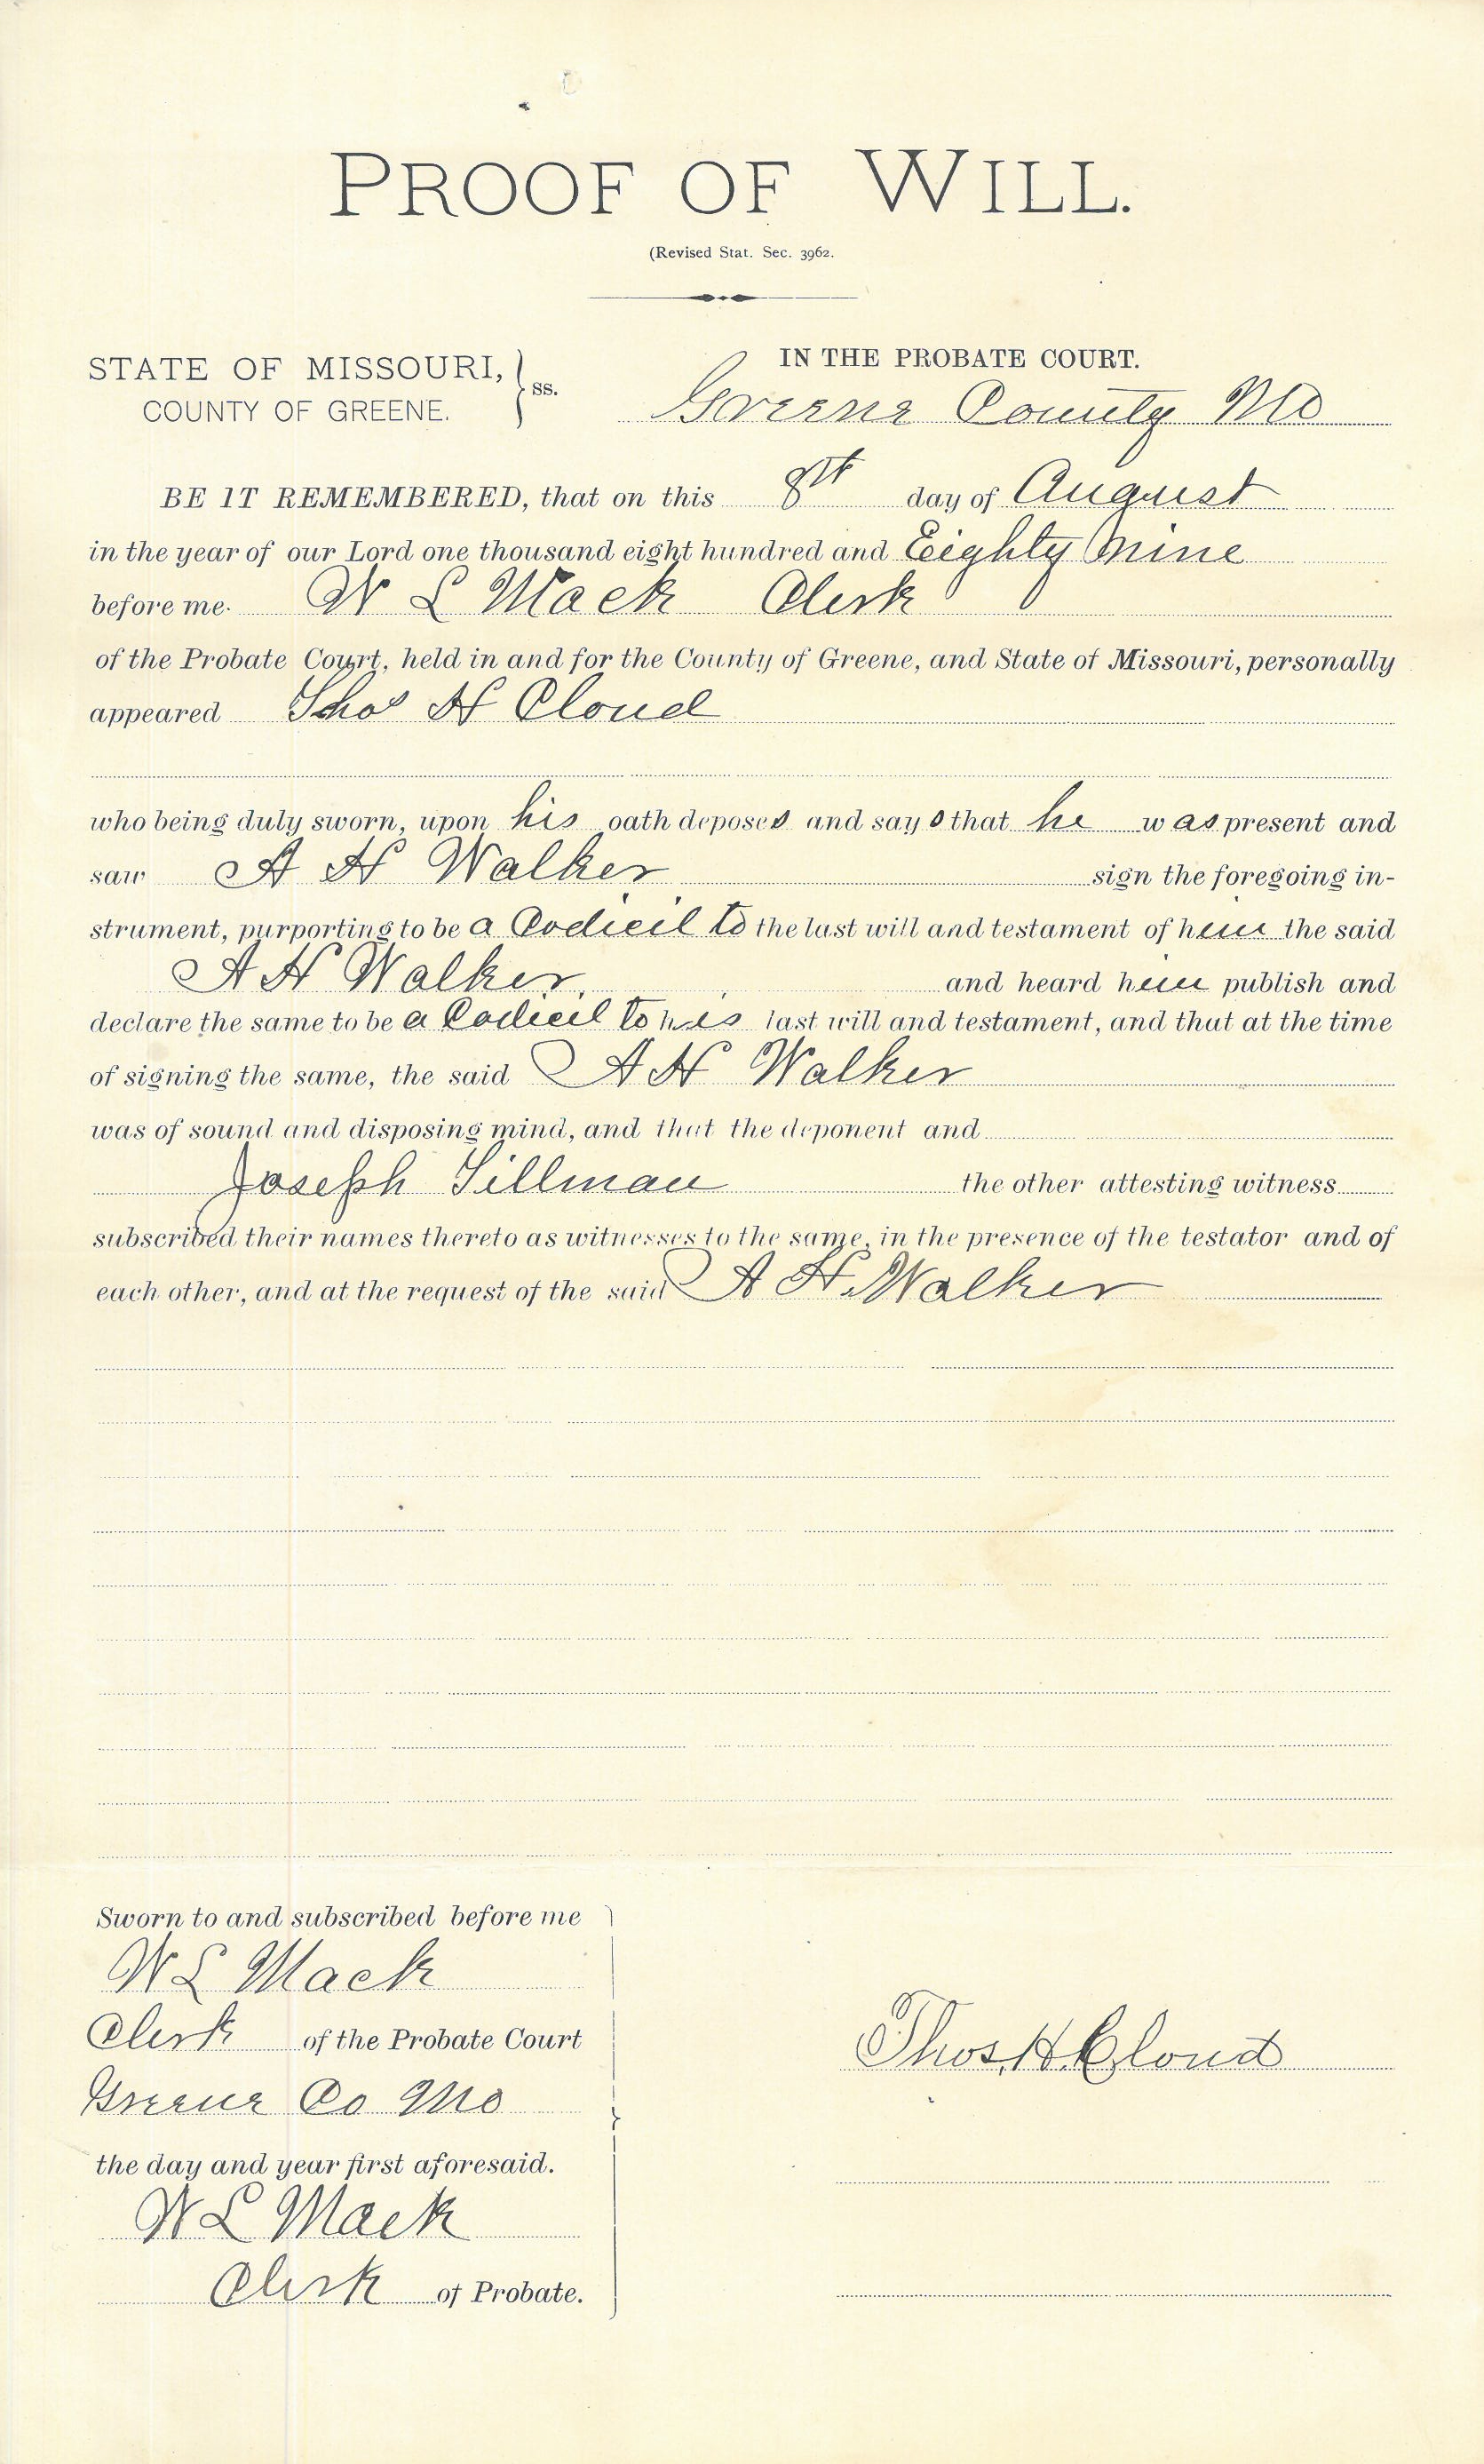 PROOF OF WILL.
(Revised Stat. Sec. 3962.
STATE OF MISSOURI, } ss.
COUNTY OF GREENE.
IN THE PROBATE COURT.
Greene County Mo
BE IT REMEMBERED, that on this 8th day of August
in the year of our Lord one thousand eight hundred and Eighty Nine
before me. W L Mack Clerk
of the Probate Court, held in and for the County of Greene, and State of Missouri, personally
appeared Thos H Cloud
who being duly sworn, upon his oath deposes and says that he was present and
saw A H Walker sign the foregoing in-
strument, purporting to be a Codicil to the last will and testament of him the said
A H Walker. and heard him publish and
declare the same to be a Codicil to his last will and testament, and that at the time
of signing the same, the said A H Walker
was of sound and disposing mind, and that the deponent and
Joseph Sillman the other attesting witness
subscribed their names thereto as witnesses to the same, in the presence of the testator and of
each other, and at the request of the said A H. Walker
Sworn to and subscribed before me
W L Mack
Clerk of the Probate Court
Greene Co Mo
the day and year first aforesaid.
W L Mack
Clerk of Probate.
Thos. H. Cloud